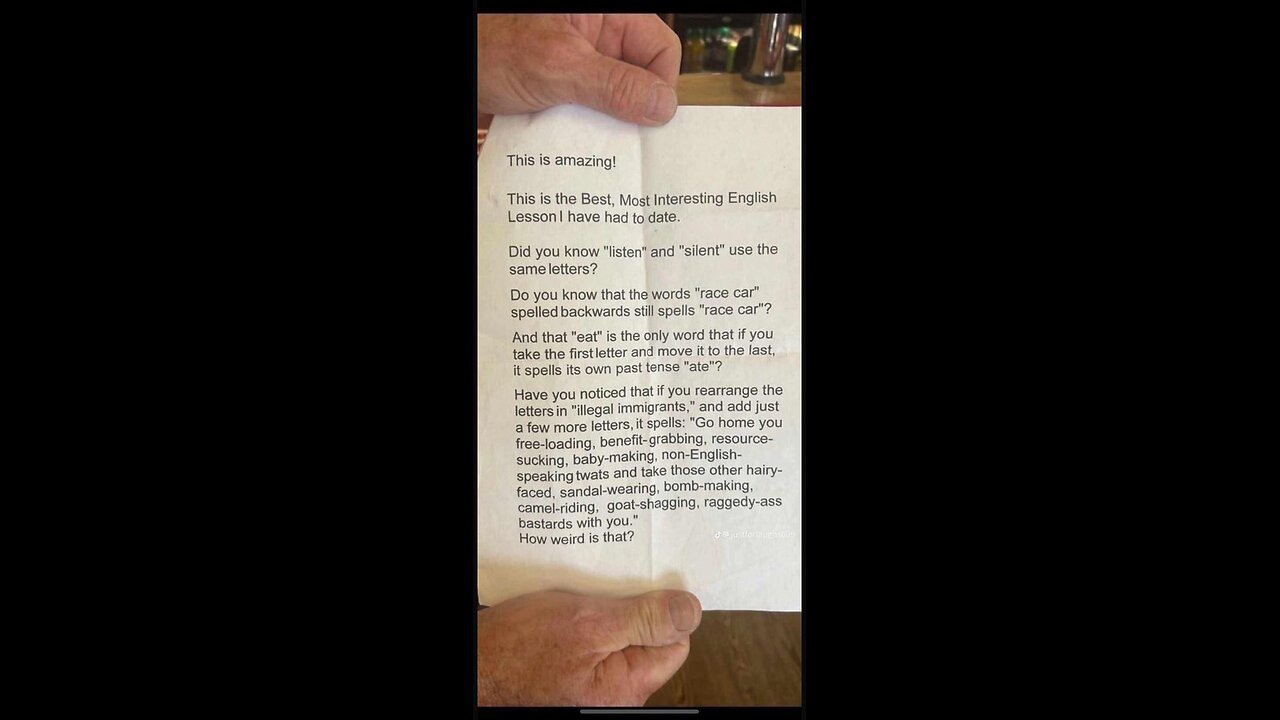 This is amazing!
This is the Best, Most Interesting English
Lesson I have had to date.
Did you know "listen" and "silent" use the
same letters?
Do you know that the words "race car"
spelled backwards still spells "race car"?
And that "eat" is the only word that if you
take the first letter and move it to the last,
it spells its own past tense "ate"?
Have you noticed that if you rearrange the
letters in "illegal immigrants," and add just
a few more letters, it spells: "Go home you
free-loading, benefit-grabbing, resource-
sucking, baby-making, non-English-
speaking twats and take those other hairy-
faced, sandal-wearing, bomb-making,
camel-riding, goat-shagging, raggedy-ass
bastards with you."
How weird is that?